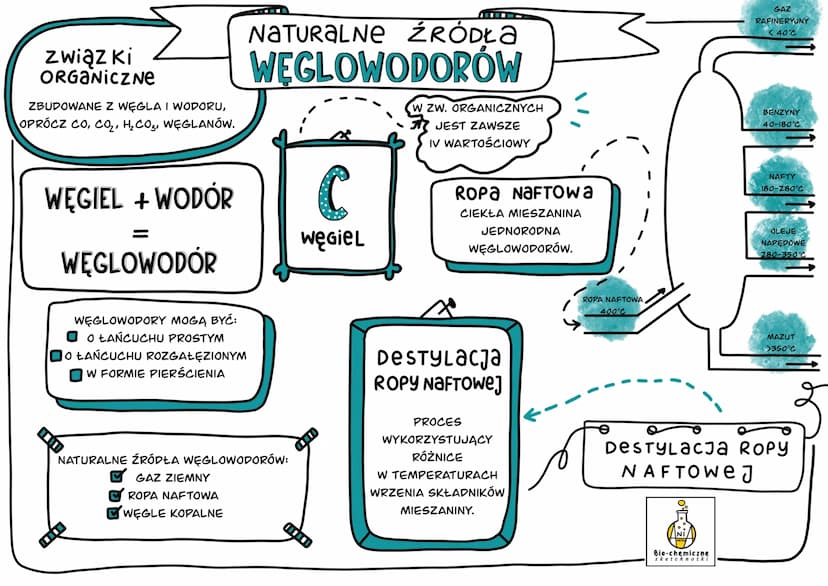 NATURALNE ŹRÓDŁA
WĘGLOWODORÓW
ZWIĄZKI
ORGANICZNE
ZBUDOWANE Z WĘGLA I WODORU,
OPRÓCZ CO, CO₂, H₂CO₃, WĘGLANÓW.
W ZW. ORGANICZNYCH
JEST ZAWSZE
IV WARTOŚCIOWY
C
WĘGIEL
WĘGIEL + WODÓR
=
WĘGLOWODÓR
ROPA NAFTOWA
CIEKŁA MIESZANINA
JEDNORODNA
WĘGLOWODORÓW.
WĘGLOWODORY MOGĄ BYĆ:
O ŁAŃCUCHU PROSTYM
O ŁAŃCUCHU ROZGAŁĘZIONYM
W FORMIE PIERŚCIENIA
NATURALNE ŹRÓDŁA WĘGLOWODORÓW:
GAZ ZIEMNY
ROPA NAFTOWA
WĘGLE KOPALNE
DESTYLACJA
ROPY NAFTOWEJ
PROCES
WYKORZYSTUJĄCY
RÓŻNICE
W TEMPERATURACH
WRZENIA SKŁADNIKÓW
MIESZANINY.
GAZ
RAFINERYJNY
< 40°C
BENZYNY
40-180°C
NAFTY
180-280°C
OLEJE
NAPĘDOWE
280-350°C
ROPA NAFTOWA
400°C
MAZUT
>350°C
DESTYLACJA ROPY
NAFTOWEJ
NI
Bio-chemiczne
sketchnotki